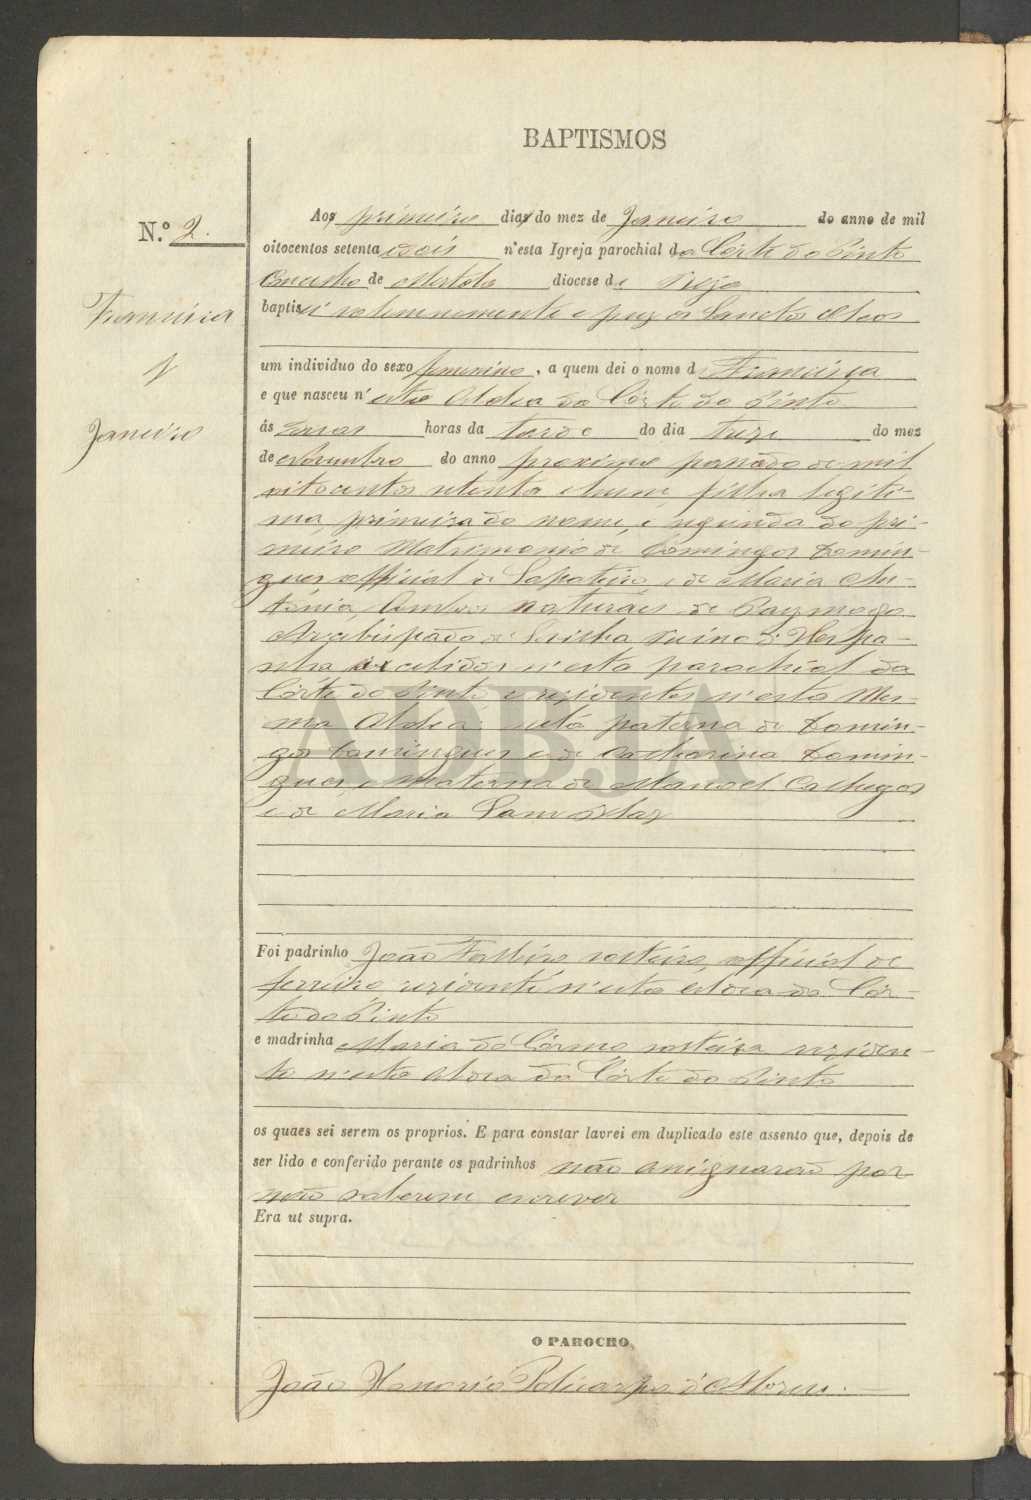 BAPTISMOS
N.º 2.
Francisca
1
Janeiro
Aos primeiro dias do mez de Janeiro do anno de mil
oitocentos setenta e dois n'esta Igreja parochial da Côrte do Pinto
Concelho de Mertola diocese de Beja
baptisei solemnemente e puz os Sanctos Oleos
um individuo do sexo femenino, a quem dei o nome de Francisca
e que nasceu n'esta Aldea da Côrte do Pinto
ás horas da tarde do dia treze do mez
de Novembro do anno proximo passado de mil
oitocentos setenta e hum, filha legiti-
ma, primeira do nome, e segunda do pri-
meiro Matrimonio de Domingos Domin-
gues official de Sapateiro, e de Maria An-
tónia, Ambos naturáes de Paymogo
Arcebispádo de Sevilha Reino de Hespa-
nha recebidos n'esta parochial da
Côrte do Pinto e rezidentes n'esta Mes-
ma Aldeá: netá paterna de Domin-
gos Domingues e de Catharina Domin-
gues, e Materna de Manoel Calhegos
e de Maria
Foi padrinho João solteiro, official de
ferreiro rezidente n'esta Aldea da Côr-
te do Pinto
e madrinha Maria do Cármo solteira reziden-
te n'esta Aldea da Côrte do Pinto
os quaes sei serem os proprios. E para constar lavrei em duplicado este assento que, depois de
ser lido e conferido perante os padrinhos não assignarão por
não saberem escrever
Era ut supra.
O PAROCHO,
João Honorio Policarpo
ADBJA